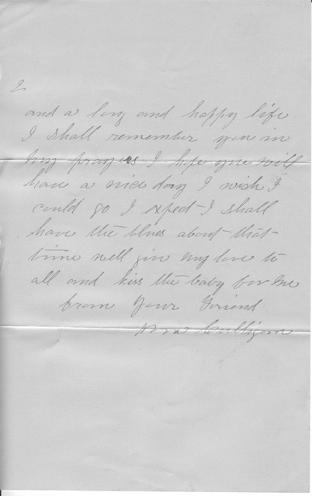 2
and a long and happy life
I shall remember you in
my prayers I hope you will
have a nice day I wish I
could go I expect I shall
have the blues about that
time well give my love to
all and kiss the baby for me
from Your Friend